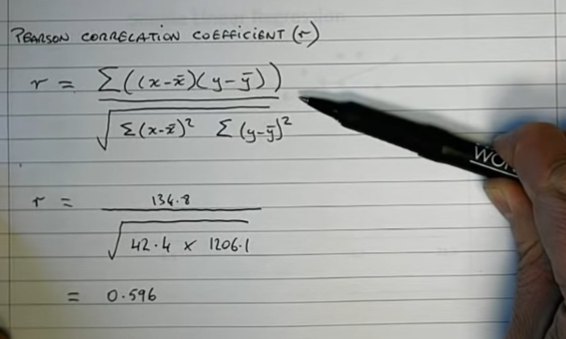 PEARSON CORRELATION COEFFICIENT (r)
r = Σ((x-x̄)(y-ȳ))
√Σ(x-x̄)² Σ(y-ȳ)²
r = 134.8
√42.4 x 1206.1
= 0.596